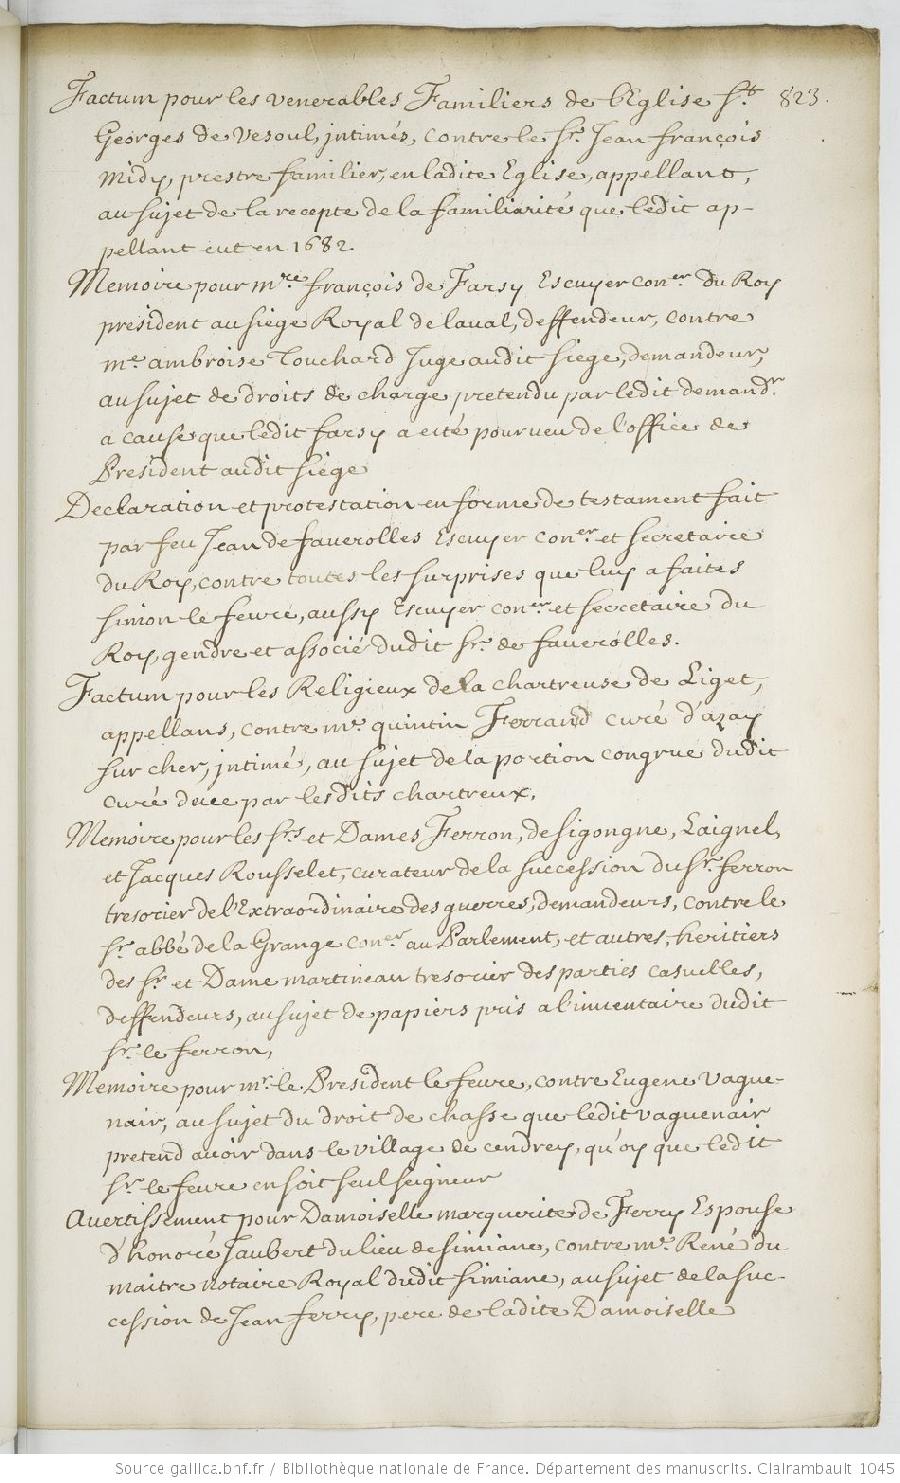 Factum pour les venerables Familiers de l'Eglise St. 823.
Georges de Vesoul, intimés, contre le Sr. Jean françois
Midy, prestre familier, en ladite Eglise, appellant,
au sujet de la recepte de la familiarité que ledit ap-
pellant eut en 1682.
Memoire pour mre. françois de Farsy Escuyer coner. du Roy
president au siege Royal de laval, deffendeur, contre
me. ambroise Touchard Juge audit siege, demandeur,
au sujet de droits de charge pretendu par ledit demandr.
a cause que ledit farsy a esté pourveu de l'office de
President audit siege
Declaration et protestation en forme de testament fait
par feu Jean de faverolles Escuyer coner. et secretaire
du Roy, contre toutes les surprises que luy a faites
simon le fevre, aussy Escuyer coner. et secretaire du
Roy, gendre et associé dudit Sr. de faverolles.
Factum pour les Religieux de la chartreuse de Liget,
appellans, contre mr. quintin Ferrand curé d'azay
sur cher, intimé, au sujet de la portion congrue dudit
curé deüe par lesdits chartreux,
Memoire pour les Srs et Dames Ferron, de sigongne, Laignel,
et Jacques Rousselet, curateur de la succession du Sr. ferron
tresorier de l'Extraordinaire des guerres, demandeurs, contre le
Sr. abbé de la Grange coner. au Parlement, et autres, heritiers
des Sr. et Dame martineau tresorier des parties casuelles,
deffendeurs, au sujet de papiers pris a l'inventaire dudit
Sr. le ferron,
Memoire pour mr. le President le fevre, contre Eugene Vague-
nair, au sujet du droit de chasse que ledit vaguenair
pretend avoir dans le village de cendrey, qu'oy que ledit
Sr. le fevre en soit seul seigneur
Avertissement pour Damoiselle marguerite de Ferry Espouse
d'honoré Jaubert du lieu de simiane, contre mr. René du
maitre notaire Royal dudit simiane, au sujet de la suc-
cession de Jean ferry, pere de ladite Damoiselle
Source gallica.bnf.fr / Bibliothèque nationale de France. Département des manuscrits. Clairambault 1045